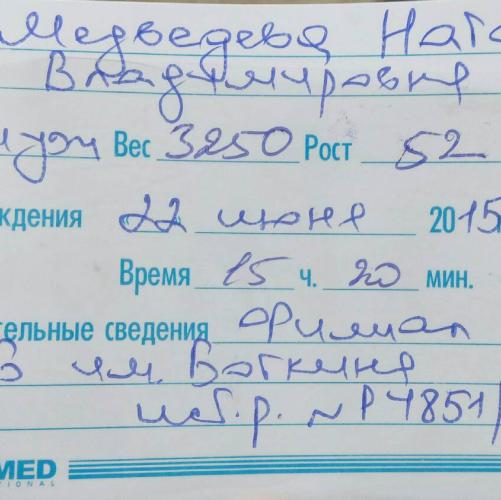 Медведева Ната
Владимировна
муж Вес 3250 Рост 52
ждения 22 июня 2015
Время 15 ч. 20 мин.
тельные сведения Филиал
им. Боткина
ист.р. № 4851
MED
TIONAL